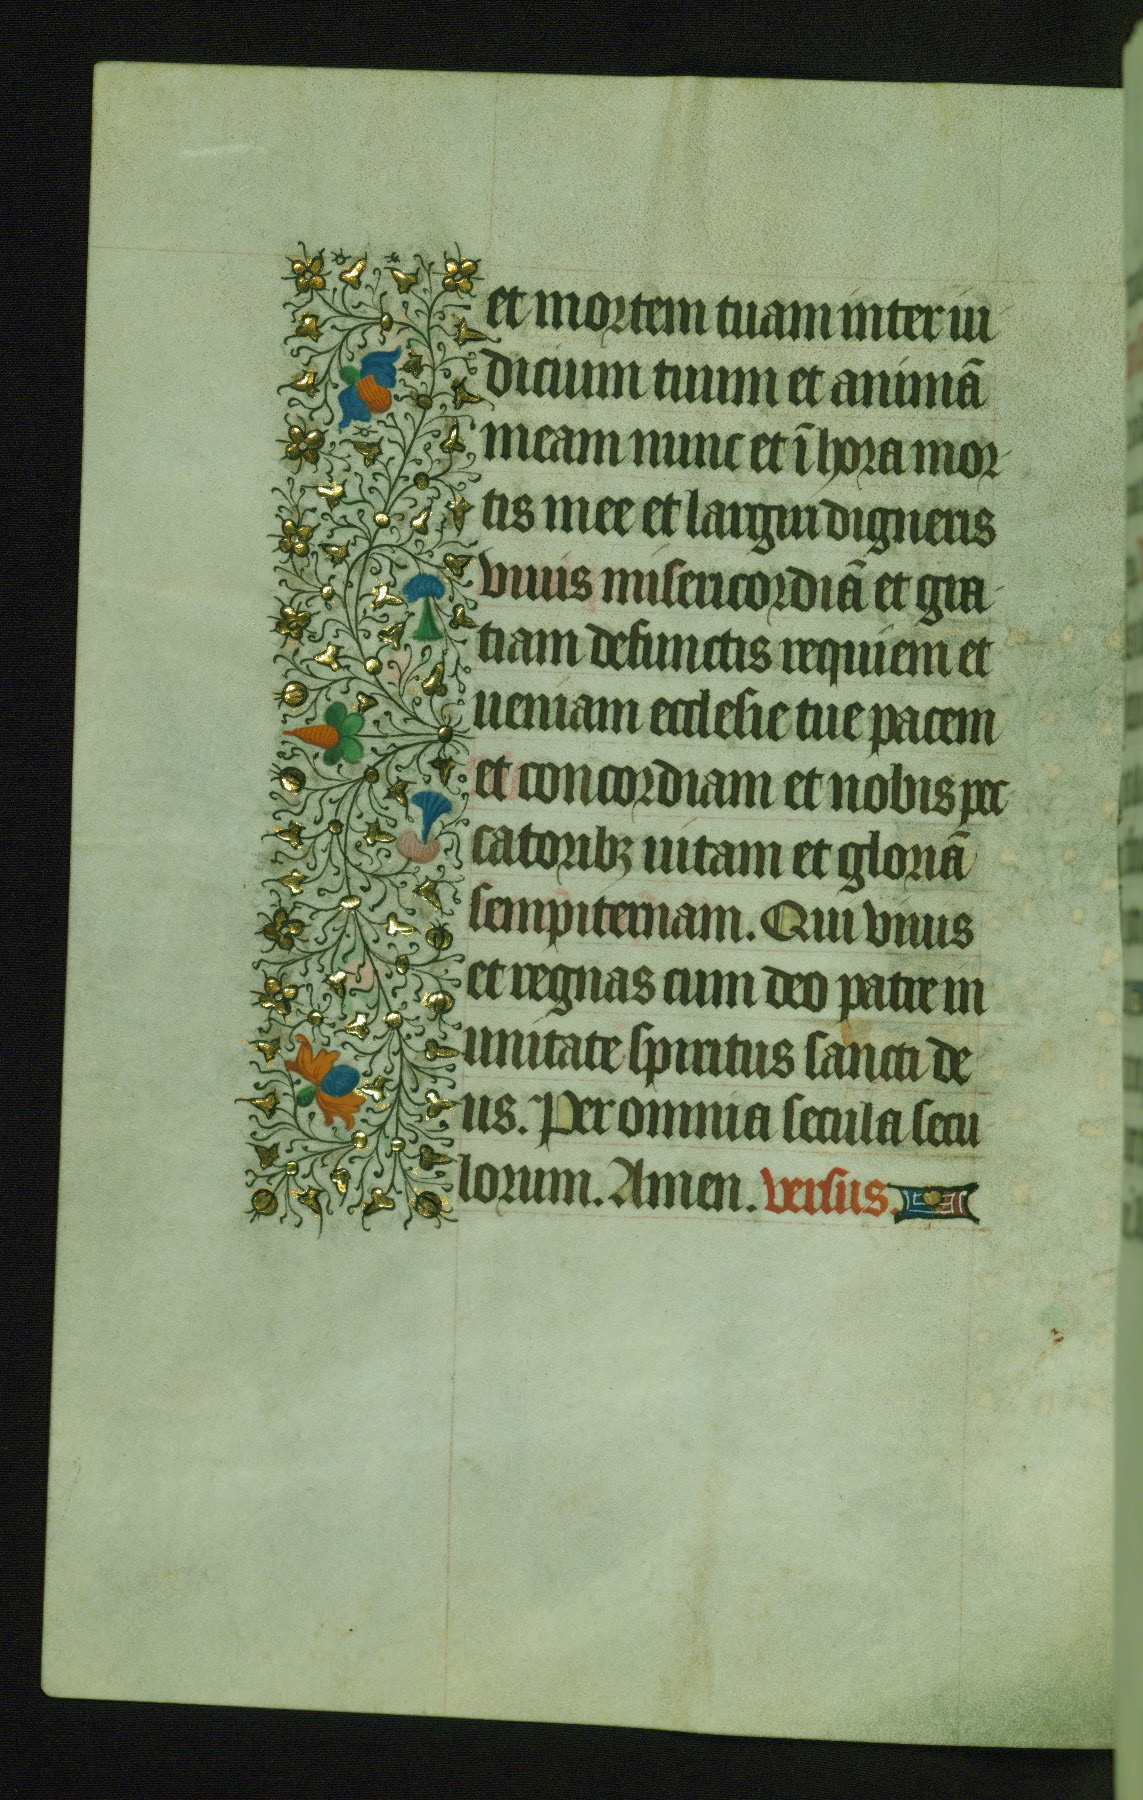 et mortem tuam inter iu
dicium tuum et animã
meam nunc et ĩ hora mor
tis mee et largiri digneris
viuis misericordiã et gra
tiam defunctis requiem et
ueniam ecclesie tue pacem
et concordiam et nobis pec
catoribꝫ uitam et gloriã
sempiternam. Qui viuis
et regnas cum deo patre in
unitate spiritus sancti de
us. Per omnia secula secu
lorum. Amen. versus.